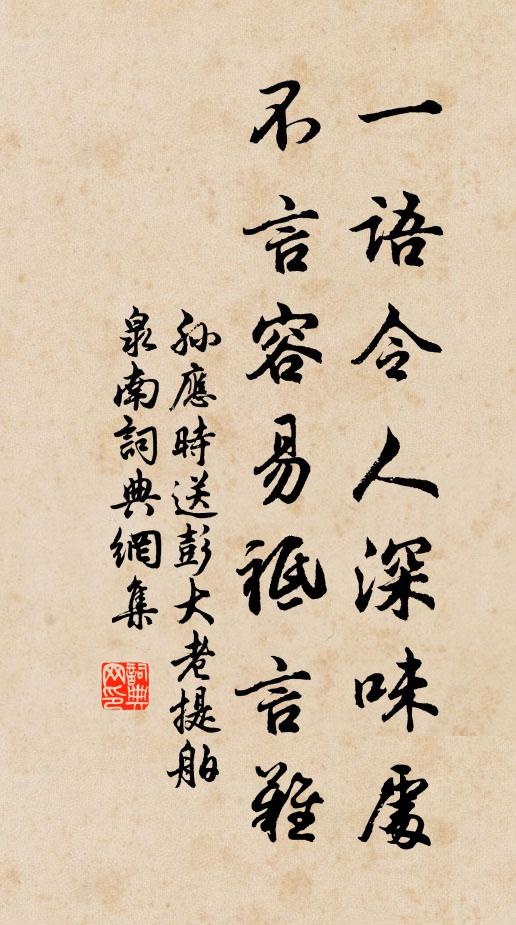 一語令人深味處
不言容易祗言難
孫應時送彭大老提舶
泉南詞典網集
詞典網印